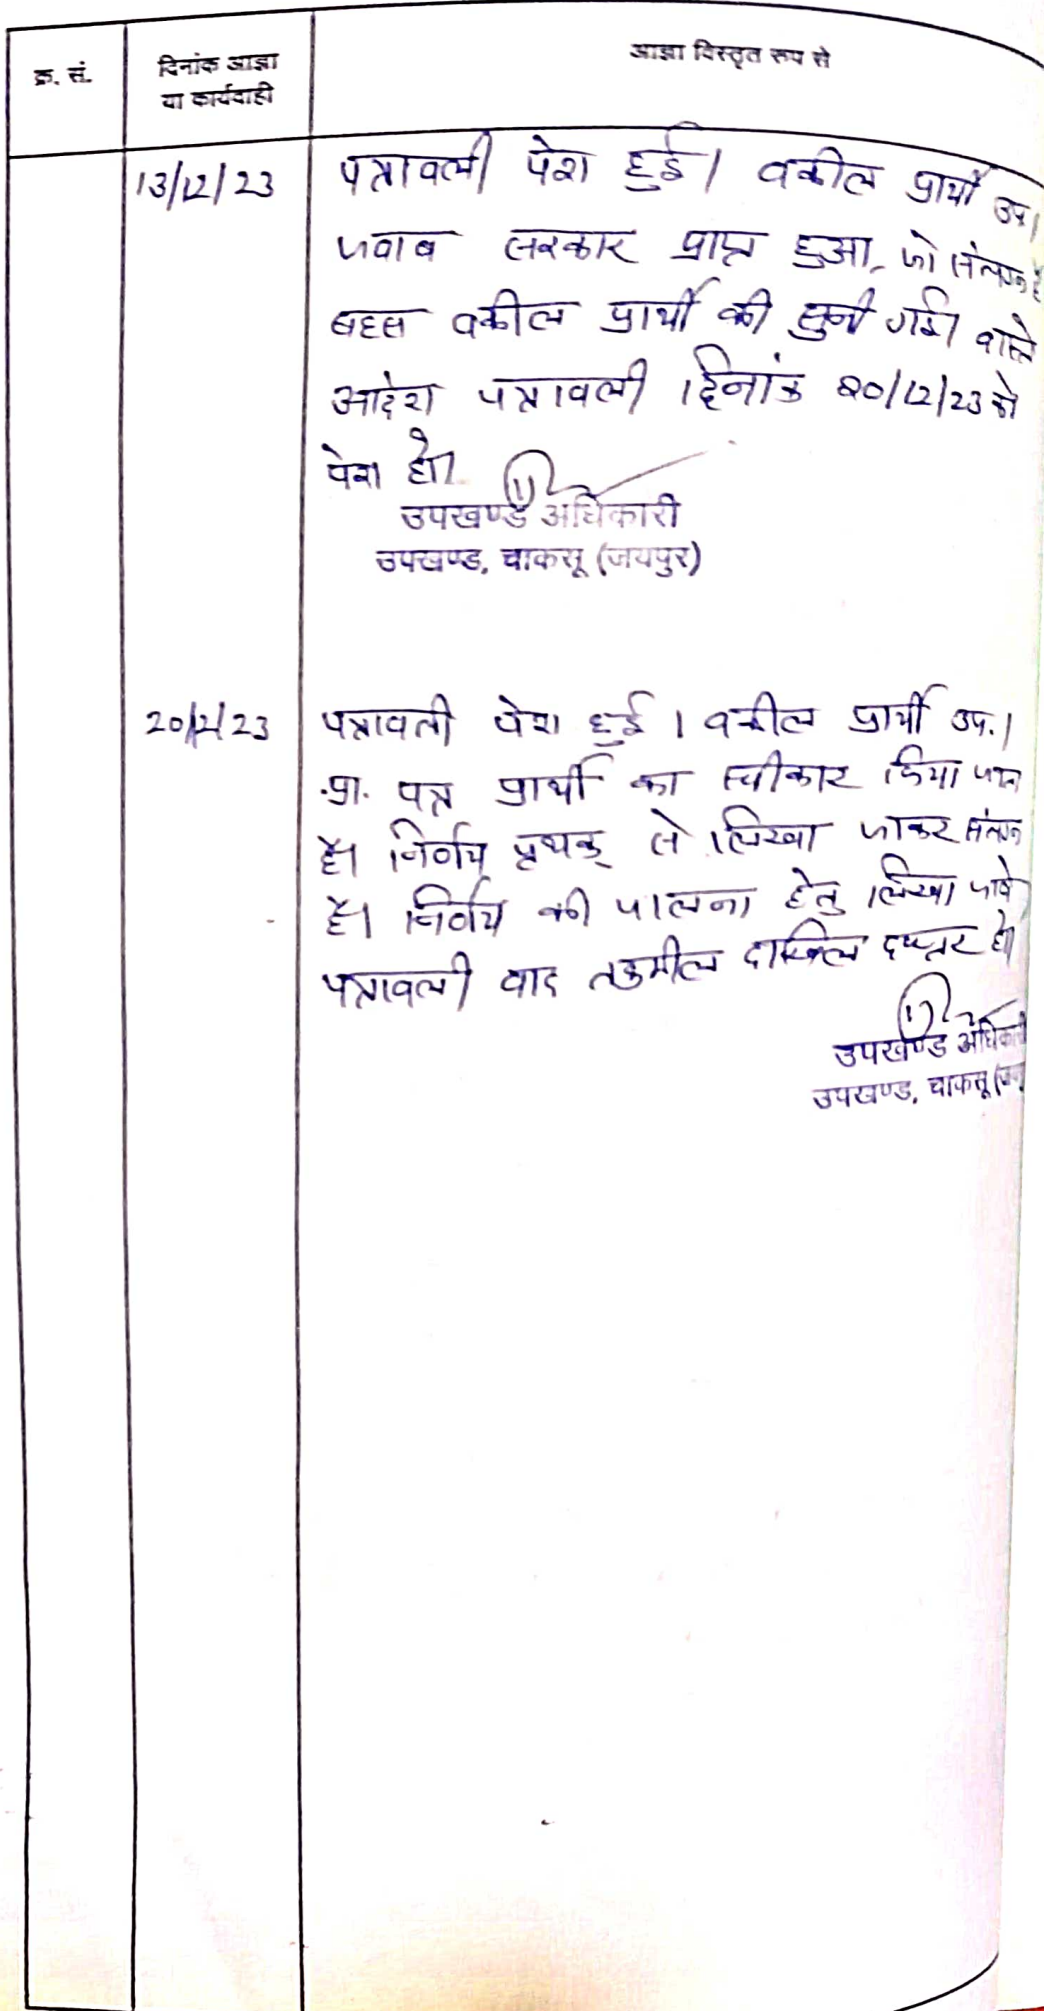 क्र. सं.
दिनांक आज्ञा
या कार्यवाही
आज्ञा विस्तृत रूप से
13/12/23
पत्रावली पेश हुई। वकील प्रार्थी उप।
जवाब सरकार प्राप्त हुआ, जो संलग्न है
बहस वकील प्रार्थी की सुनी गई। वास्ते
आदेश पत्रावली दिनांक 20/12/23 को
पेश हो।
उपखण्ड अधिकारी
उपखण्ड, चाकसू (जयपुर)
20/12/23
पत्रावली पेश हुई। वकील प्रार्थी उप.।
प्रा. पत्र प्रार्थी का स्वीकार किया जाता
है। निर्णय पृथक् से लिखा जाकर संलग्न
है। निर्णय की पालना हेतु लिखा जावे
पत्रावली बाद तकमील दाखिल दफ्तर हो
उपखण्ड अधिका
उपखण्ड, चाकसू (जय